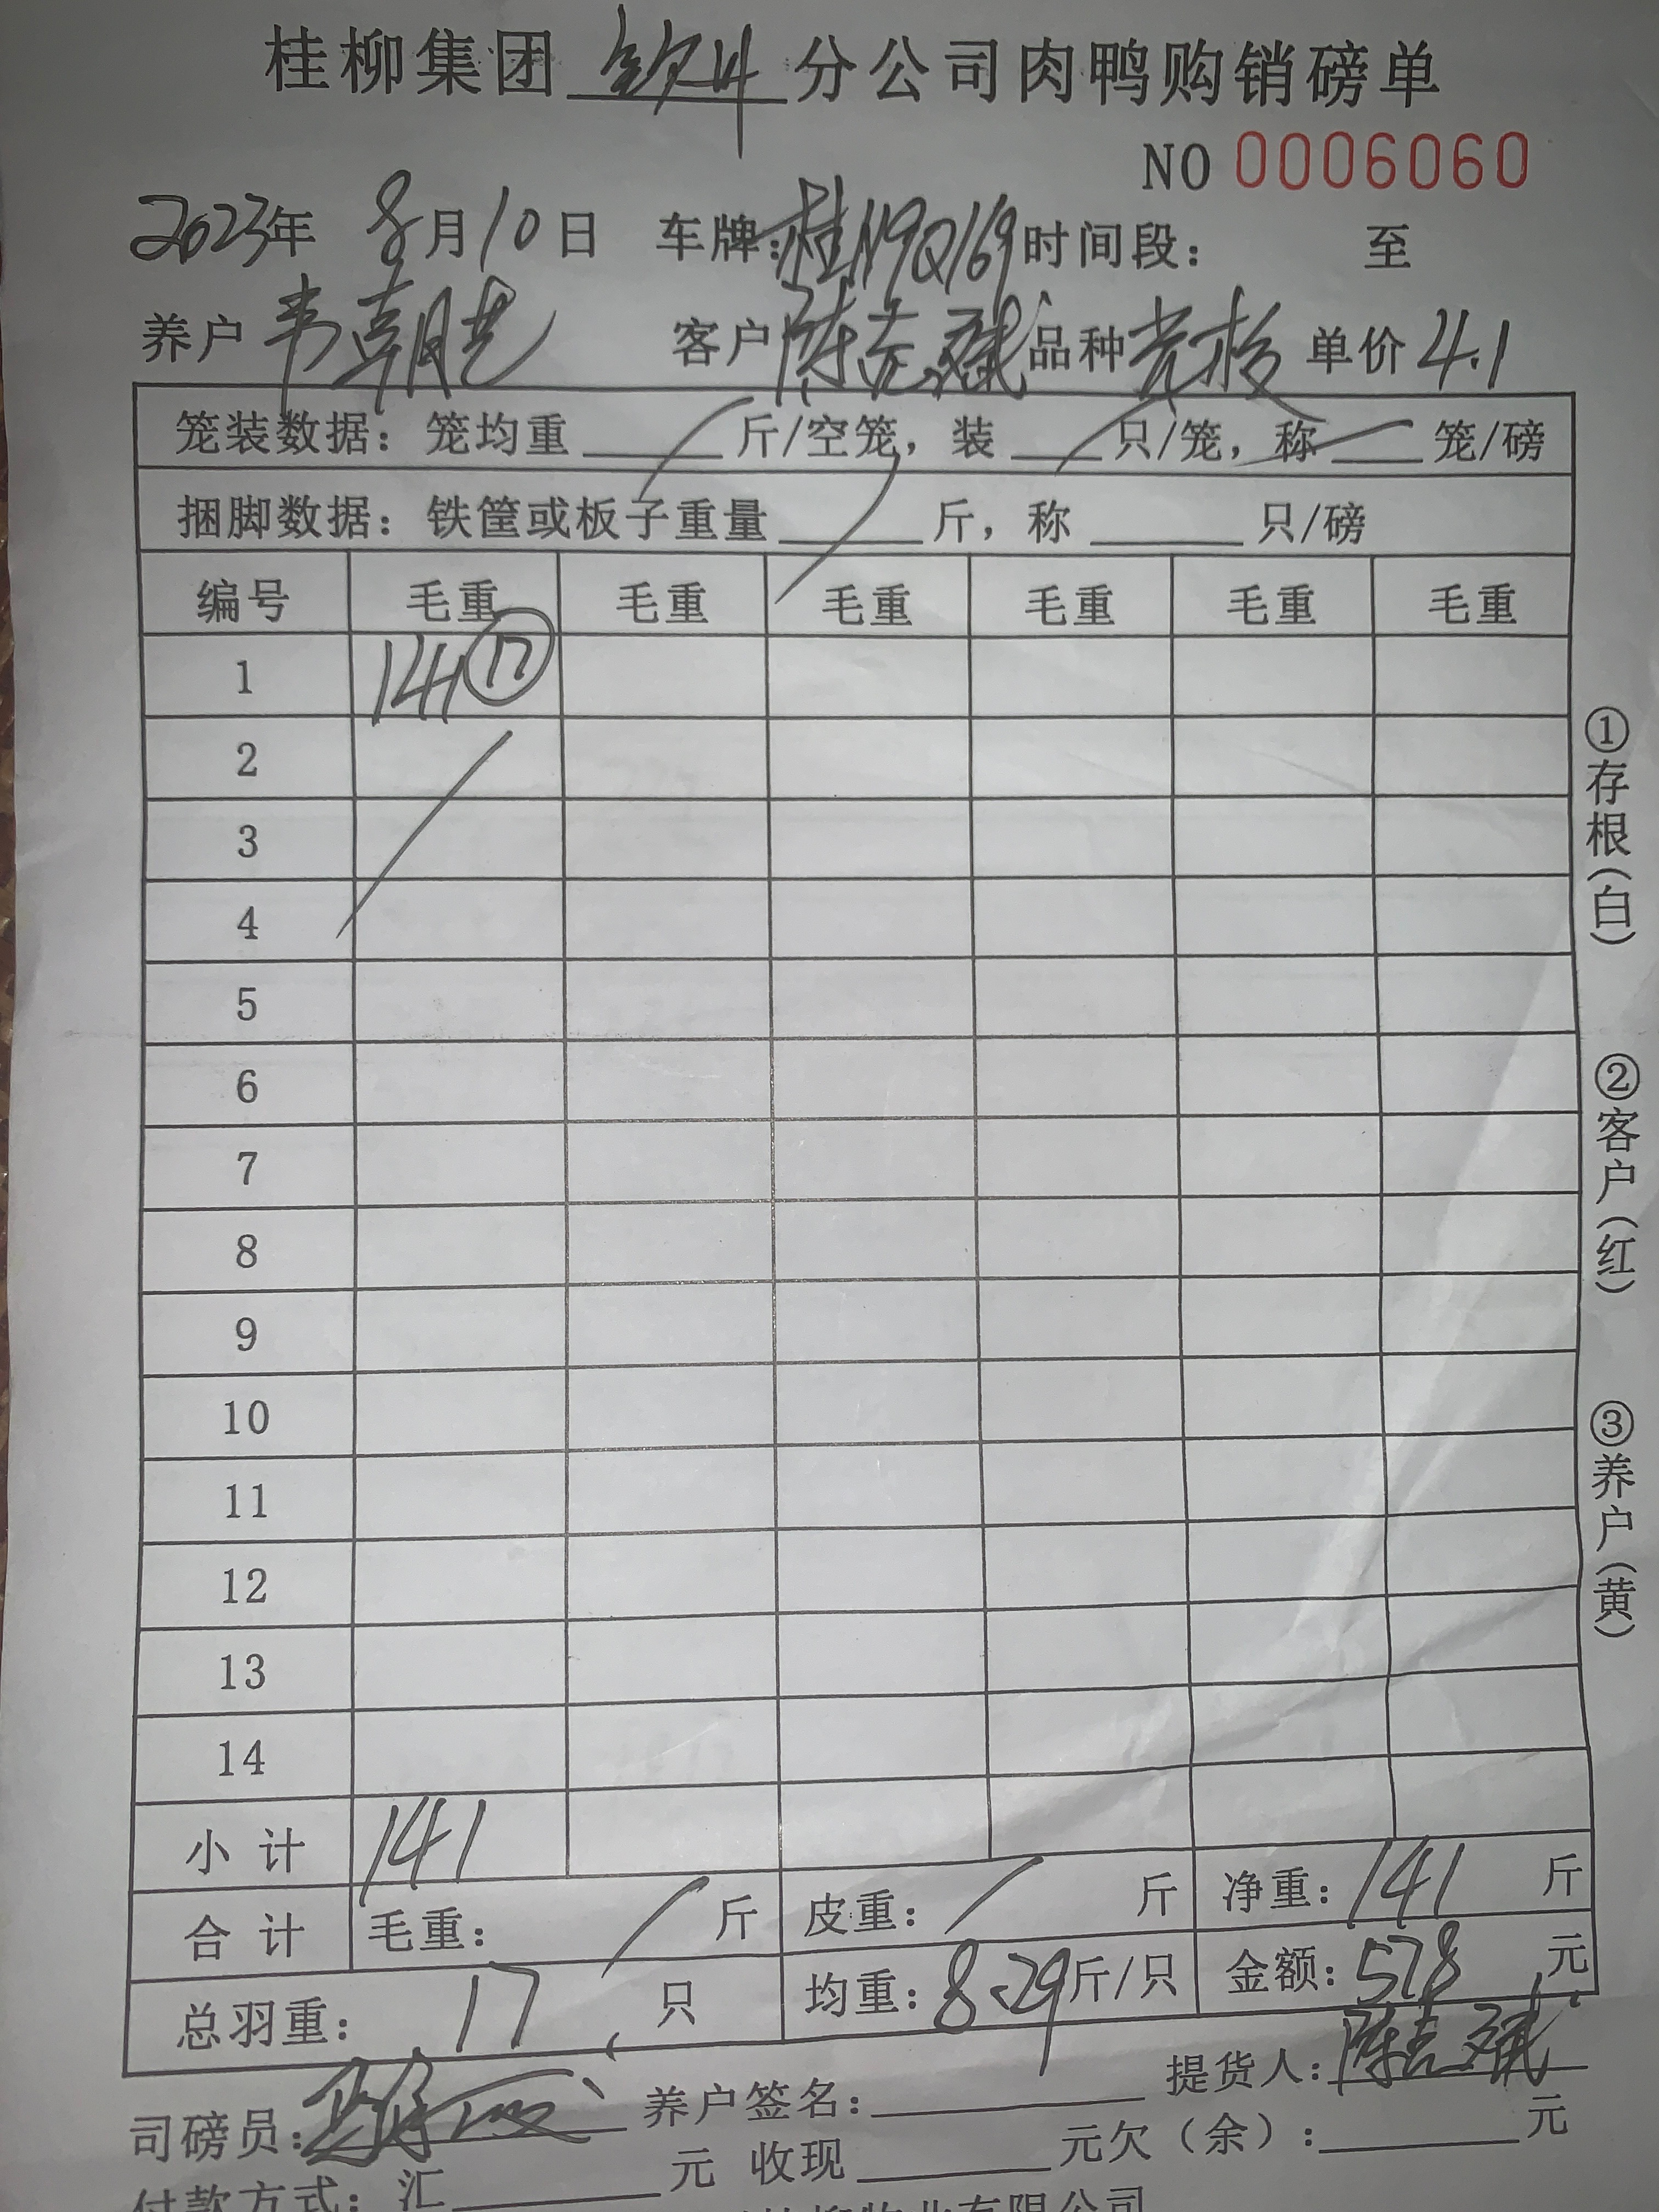 桂柳集团 钦州 分公司肉鸭购销磅单
NO 0006060
2023年 8月10日 车牌:桂N9Q169 时间段: 至
养户 韦朝艺 客户 陈克斌 品种 单价 4.1
笼装数据: 笼均重 斤/空笼, 装 只/笼, 称 笼/磅
捆脚数据: 铁筐或板子重量 斤, 称 只/磅
编号 毛重 毛重 毛重 毛重 毛重 毛重
1 141 ⑰
2
3
4
5
6
7
8
9
10
11
12
13
14
小计 141
合计 毛重: 斤 皮重: 斤 净重: 141 斤
总羽重: 17 只 均重: 8.29斤/只 金额: 578 元
司磅员: 养户签名: 提货人: 陈克斌
付款方式: 汇 元 收现 元欠(余): 元
①存根(白)
②客户(红)
③养户(黄)